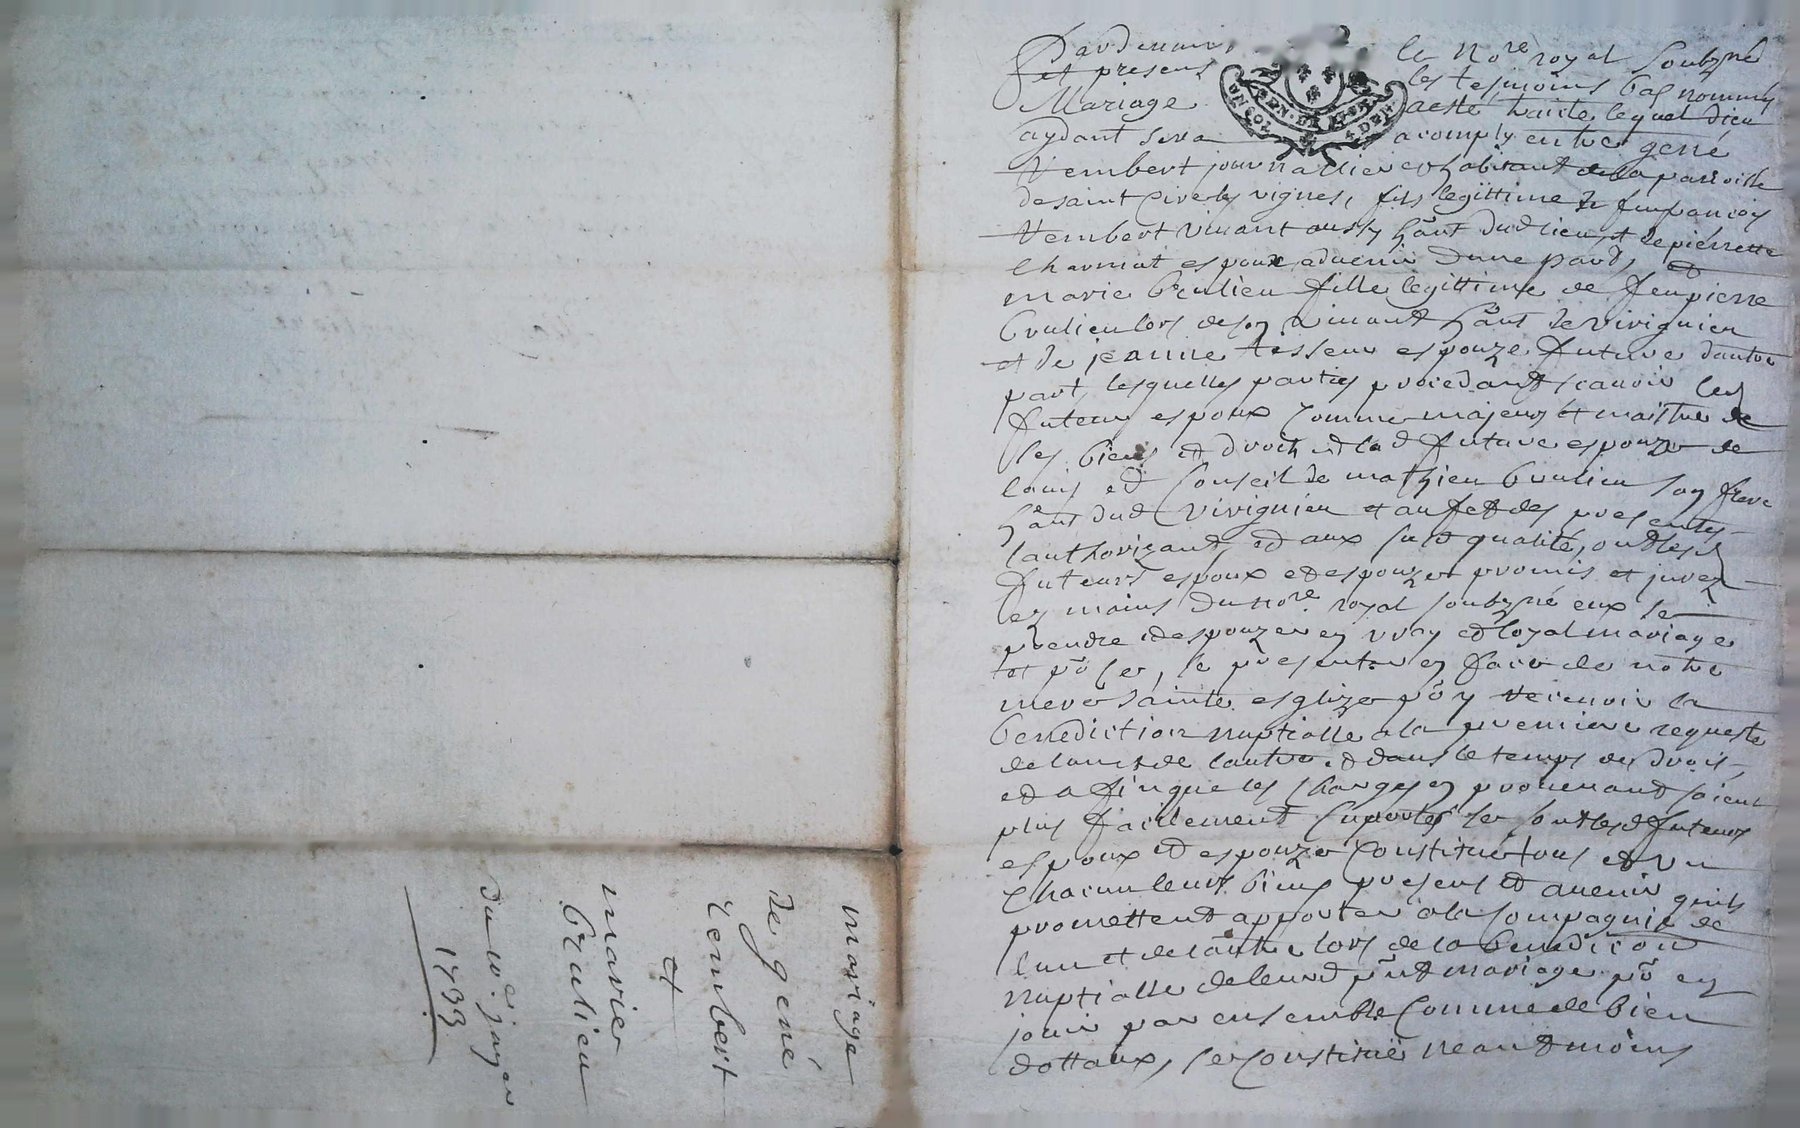 Pardevant le No.re royal soubzné
et presens les tesmoins bas nommés
Mariage a esté traité lequel Dieu
aydant sera acomply entre gené
Vembert journallier habitant de la parroisse
de saint Cire les vignes, fils legittime de feu francois
Vembert vivant aussy hant dud lieu et de pierrette
Charmat espoux advenir dune part, et
marie brulieu fille legittime de feu pierre
brulieu lors de son vivant hant de virignieu
et de jeanne tisseur espouze future dautre
part, lesquelles parties procedant scavoir led
futeur espoux comme majeur et maistre de
ses biens et droits et lad future espouze de
lavis et conseil de mathieu brulieu son frere
hant dud virignieu et au fet des presentes
lauthorizant, et aux susd qualités, ont lesd
futeurs espoux et espouze promis et jurez
es mains du no.re royal soubzné eux se
prendre et espouzer en vray et loyal mariage
et po ce, se presenter en face de notre
mere sainte esglize po y recevoir la
benediction nuptialle a la premiere requeste
de lun et de lautre et dans le temps de droit,
et a fin que les charges en provenant soient
plus facillement suportés se sont lesd futeurs
espoux et espouze constitué tous et un
chacun leurs biens presens et avenir quils
promettent apporter a la compagnie de
lun et de lautre lors de la benedicon
nuptialle de leurd pnt mariage po en
jouir par ensemble comme de bien
dottaux, se constitüe neantmoins
mariage
de gené
Vembert
et
marie
brulieu
1733